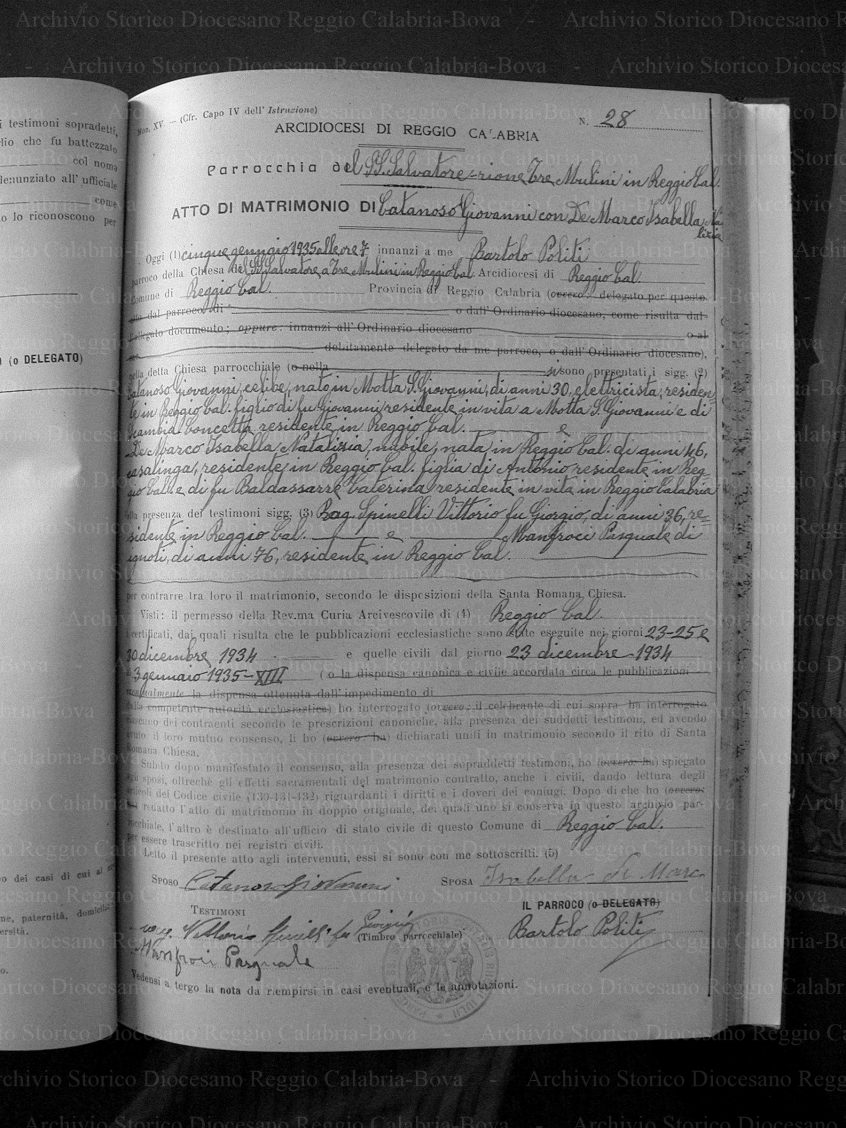 Archivio Storico Diocesano Reggio Calabria-Bova
Mod. XV. — (Cfr. Capo IV dell' Istruzione)
N. 28
ARCIDIOCESI DI REGGIO CALABRIA
Parrocchia del SS. Salvatore - rione Tre Mulini in Reggio Cal.
ATTO DI MATRIMONIO DI Catanoso Giovanni con De Marco Isabella Natalizia
Oggi (1) cinque gennaio 1935 alle ore 7 innanzi a me Bartolo Politi
parroco della Chiesa del SS. Salvatore a Tre Mulini in Reggio Cal. Arcidiocesi di Reggio Cal.
Comune di Reggio Cal. Provincia di Reggio Calabria (ovvero: delegato per questo
atto dal parroco di o dall' Ordinario diocesano, come risulta dal
allegato documento; oppure: innanzi all' Ordinario diocesano o al
debitamente delegato da me parroco, o dall' Ordinario diocesano),
nella della Chiesa parrocchiale (o nella si sono presentati i sigg. (2)
Catanoso Giovanni, celibe, nato in Motta S. Giovanni, di anni 30, elettricista, residen-
te in Reggio Cal. figlio di fu Giovanni, residente in vita a Motta S. Giovanni e di
Scambia Concetta residente in Reggio Cal. e
De Marco Isabella Natalizia, nubile, nata in Reggio Cal. di anni 46,
casalinga, residente in Reggio Cal. figlia di Antonio residente in Reg-
gio Cal. e di fu Baldassarre Caterina residente in vita in Reggio Calabria
alla presenza dei testimoni sigg. (3) Rag. Spinelli Vittorio fu Giorgio, di anni 36, re-
sidente in Reggio Cal. e Manfroci Pasquale di
ignoti, di anni 76, residente in Reggio Cal.
per contrarre tra loro il matrimonio, secondo le disposizioni della Santa Romana Chiesa.
Visti: il permesso della Rev.ma Curia Arcivescovile di (4) Reggio Cal.
i certificati, dai quali risulta che le pubblicazioni ecclesiastiche sono state eseguite nei giorni 23-25 e
30 dicembre 1934 e quelle civili dal giorno 23 dicembre 1934
al 3 gennaio 1935-XIII (o la dispensa canonica e civile accordata circa le pubblicazioni
eventualmente la dispensa ottenuta dall' impedimento di
dalla competente autorità ecclesiastica) ho interrogato (ovvero: il celebrante di cui sopra ha interrogato
ciascuno dei contraenti secondo le prescrizioni canoniche, alla presenza dei suddetti testimoni, ed avendo
avuto il loro mutuo consenso, li ho (ovvero ha) dichiarati uniti in matrimonio secondo il rito di Santa
Romana Chiesa.
Subito dopo manifestato il consenso, alla presenza dei sopraddetti testimoni, ho (ovvero ha) spiegato
agli sposi, oltrechè gli effetti sacramentali del matrimonio contratto, anche i civili, dando lettura degli
articoli del Codice civile (130-131-132) riguardanti i diritti e i doveri dei coniugi. Dopo di che ho (ovvero:
ha) redatto l'atto di matrimonio in doppio originale, dei quali uno si conserva in questo archivio par-
rocchiale, l'altro è destinato all' ufficio di stato civile di questo Comune di Reggio Cal.
per essere trascritto nei registri civili.
Letto il presente atto agli intervenuti, essi si sono con me sottoscritti. (5)
SPOSO Catanoso Giovanni
SPOSA Isabella De Marco
TESTIMONI
IL PARROCO (o DELEGATO)
rag. Vittorio Spinelli fu Giorgio
(Timbro parrocchiale)
Bartolo Politi
Manfroci Pasquale
Vedensi a tergo la nota da riempirsi in casi eventuali, e le annotazioni.
i testimoni sopradetti,
che fu battezzato
col nome
denunziato all' ufficiale
come
lo riconoscono per
(o DELEGATO)
dei casi di cui al
paternità,